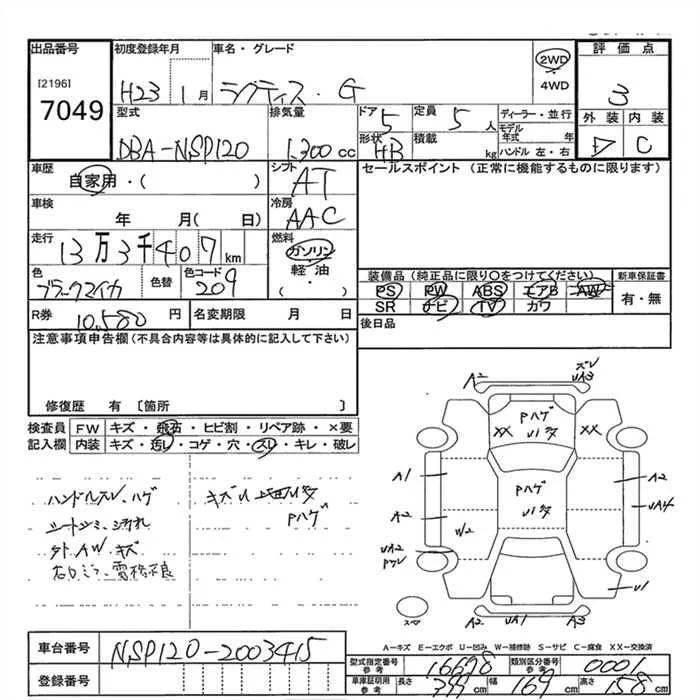 出品番号 初度登録年月 車名・グレード 評価点
[2196] 7049
H23 1月 ラクティス・G 2WD・4WD 3
型式 排気量 ドア 5 定員 5人 ディーラー・並行 外装 内装
DBA-NSP120 1,300cc 形状 HB 積載 kg モデル年式 年 ハンドル 左・右 D C
車歴 自家用・( ) シフト AT セールスポイント(正常に機能するものに限ります)
車検 年 月( 日) 冷房 AAC
走行 13万3千407km 燃料 ガソリン 軽油・( )
色 ブラックマイカ 色替 色コード 209
装備品(純正品に限り○をつけてください) 新車保証書
PS PW ABS エアB AW 有・無
SR ナビ TV カワ
R券 10,580円 名変期限 月 日 後日品
注意事項申告欄(不具合内容等は具体的に記入して下さい)
修復歴 有 〔箇所 〕
検査員記入欄 FW キズ・飛石・ヒビ割・リペア跡・×要
内装 キズ・汚レ・コゲ・穴・スレ・キレ・破レ
ハンドルスレ、ハゲ
シートシミ、汚れ
外AW、キズ
キズ
Pハゲ
A2
ズレ
UA3
Pハゲ
XX
XX
A1
Pハゲ
A2
A2
UA4
UA2
U1
A2
UA1
A3
スペア
A-キズ E-エクボ U-凹み W-補修跡 S-サビ C-腐食 XX-交換済
車台番号 NSP120-2003415
登録番号
型式指定番号 参考 16698 類別区分番号 参考 0001
車庫証明用 参考 長さ 399cm 幅 169cm 高さ 158cm